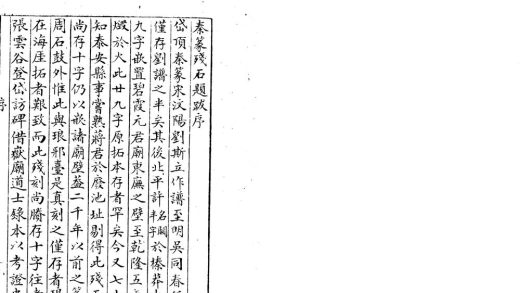 秦篆殘石題跋序
岱頂秦篆宋汶陽劉斯立作譜至明吳同春
僅存劉譜之半矣其後北平許某名闕半字於榛莽
九字嵌置碧霞元君廟東廡之壁至乾隆五
燬於火此廿九字原拓本存者罕矣今又七十
知泰安縣事嘗熟蔣君於廢池址剔得此殘石
尚存十字仍以嵌諸廟壁蓋二千年以前之篆
周石鼓外惟此與琅邪臺是真刻之僅存者
在海厓拓者艱致而此殘刻尚賸存十字往者
張雲谷登岱訪碑借嶽廟道士錄本以考證
序